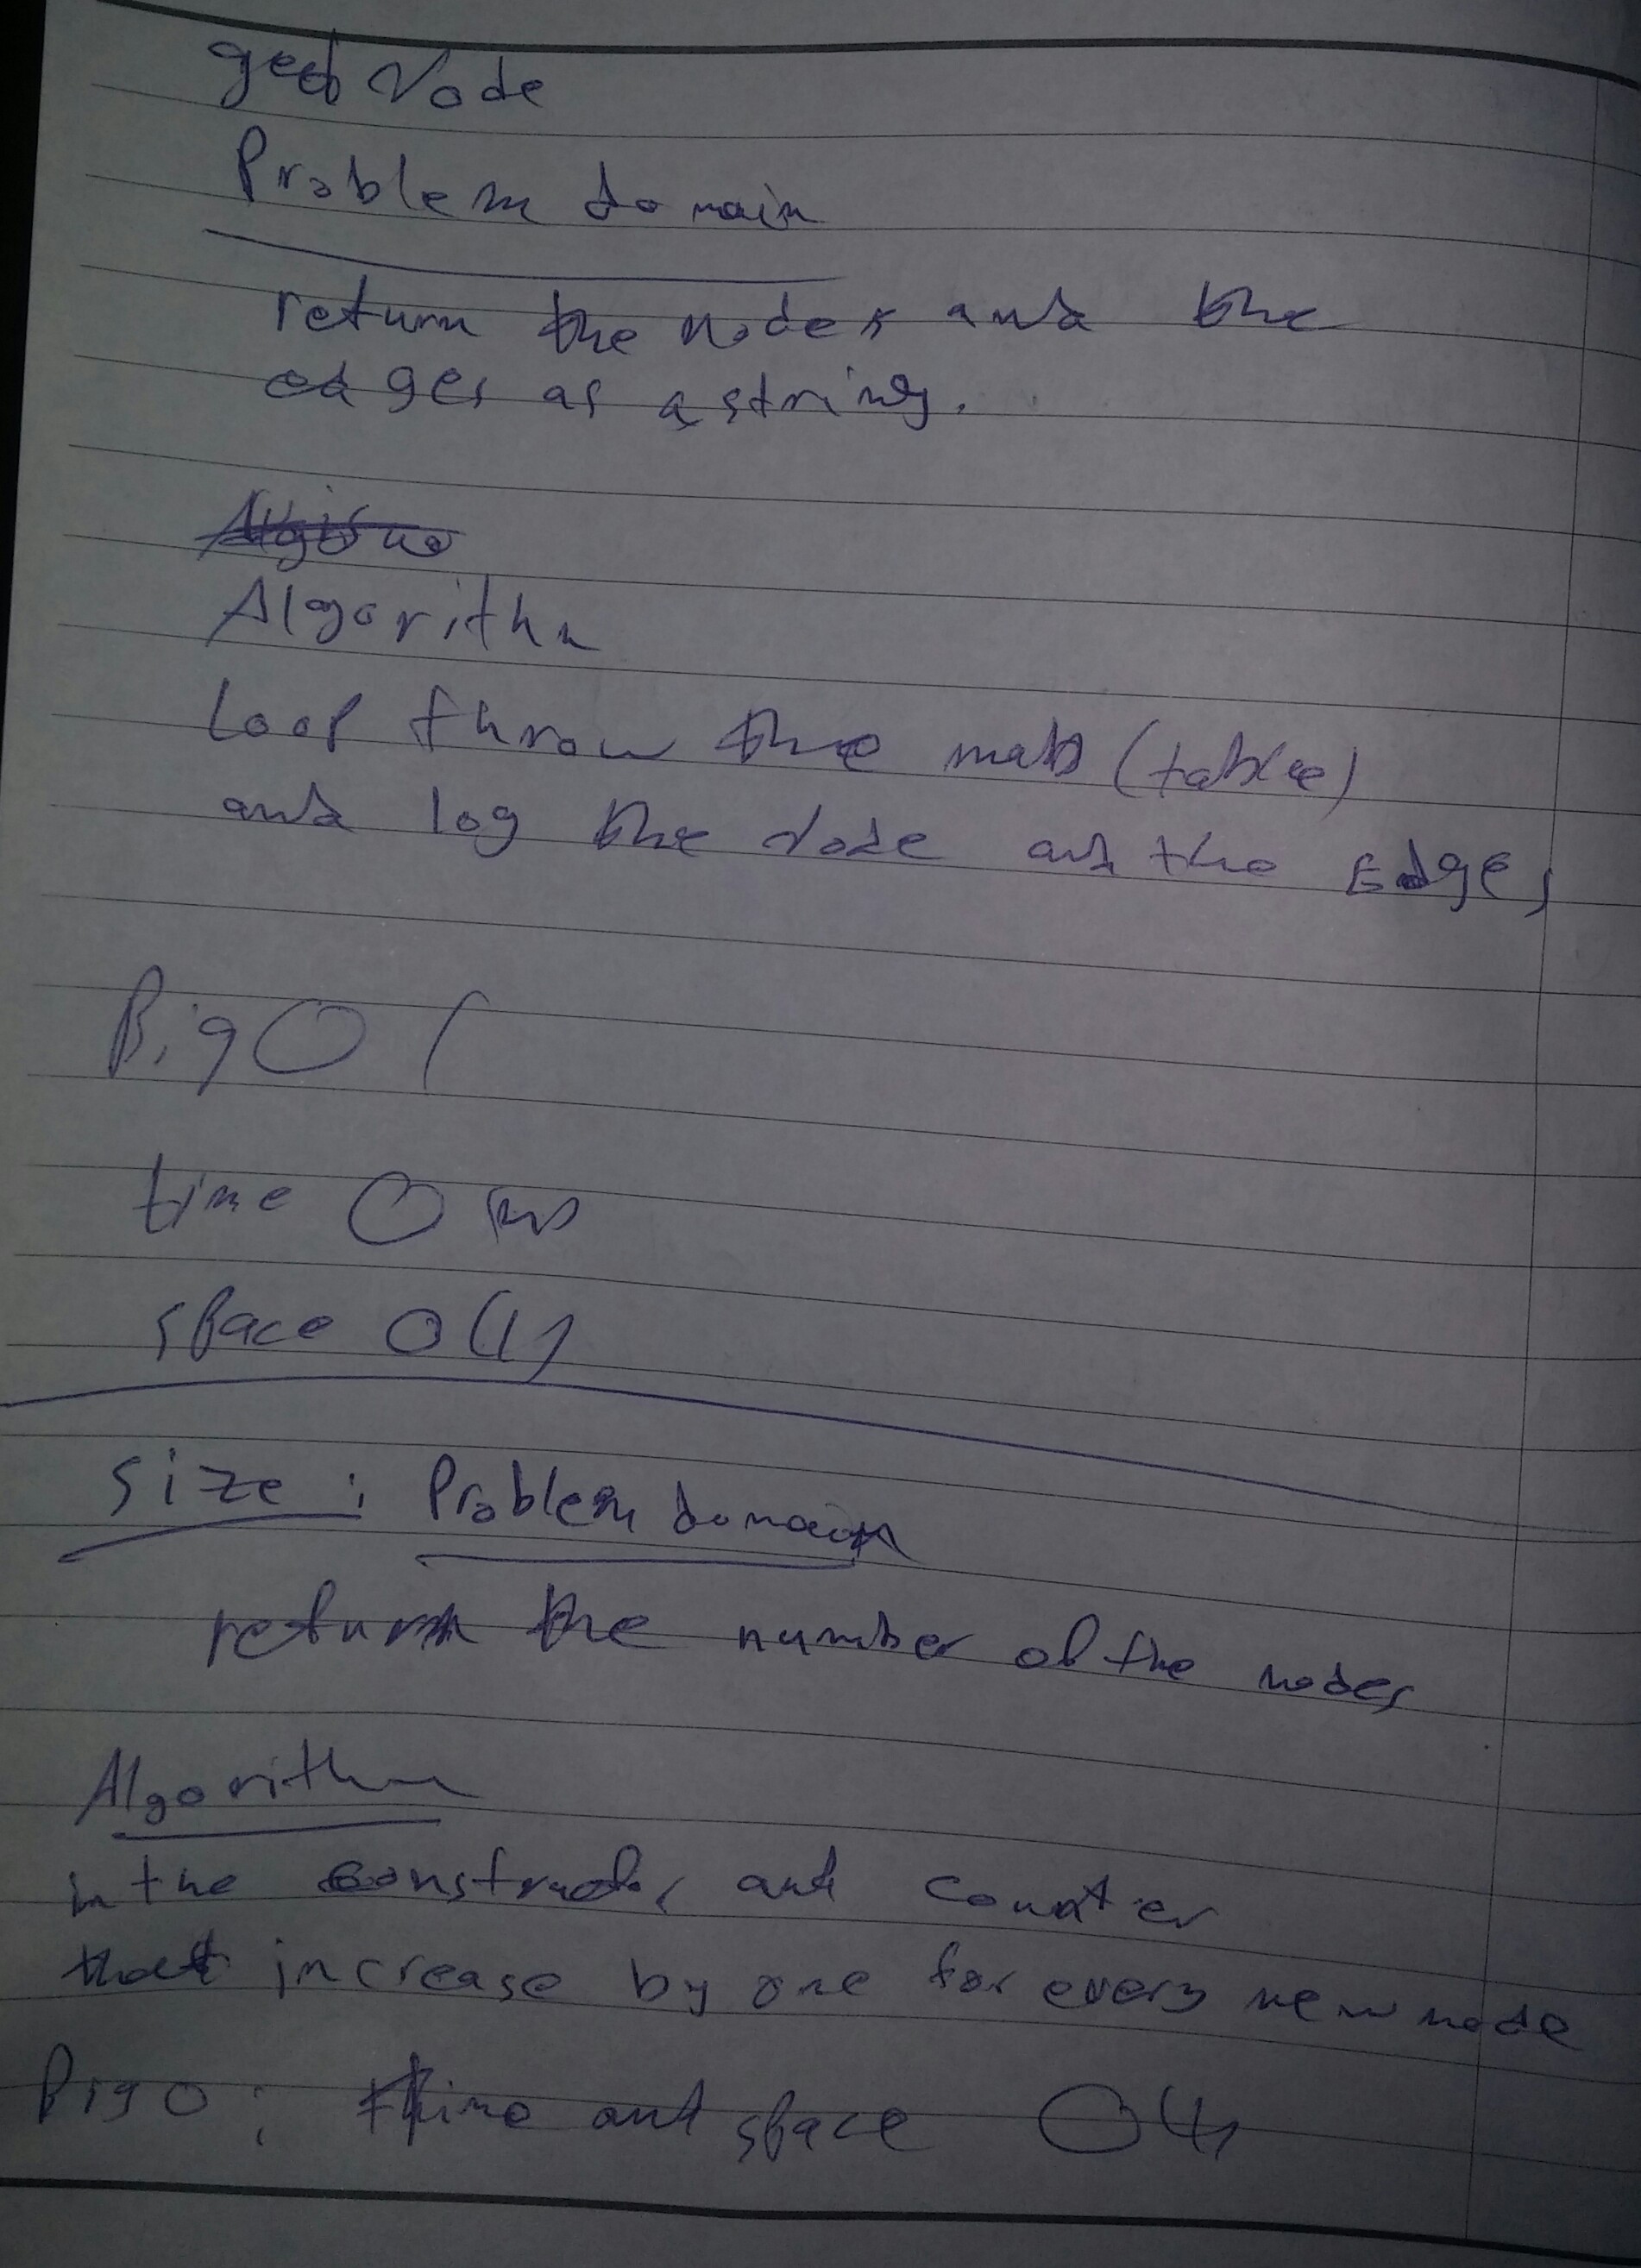 get Node
Problem domain
return the nodes and the
edges as a string.
Algorithm
Loop throw the map (table)
and log the Node and the Edges
Big O (
time O (n)
space O(1)
size : Problem domain
return the number of the nodes
Algorithm
in the constructor and counter
that increase by one for every new node
Big O : time and space O(1)